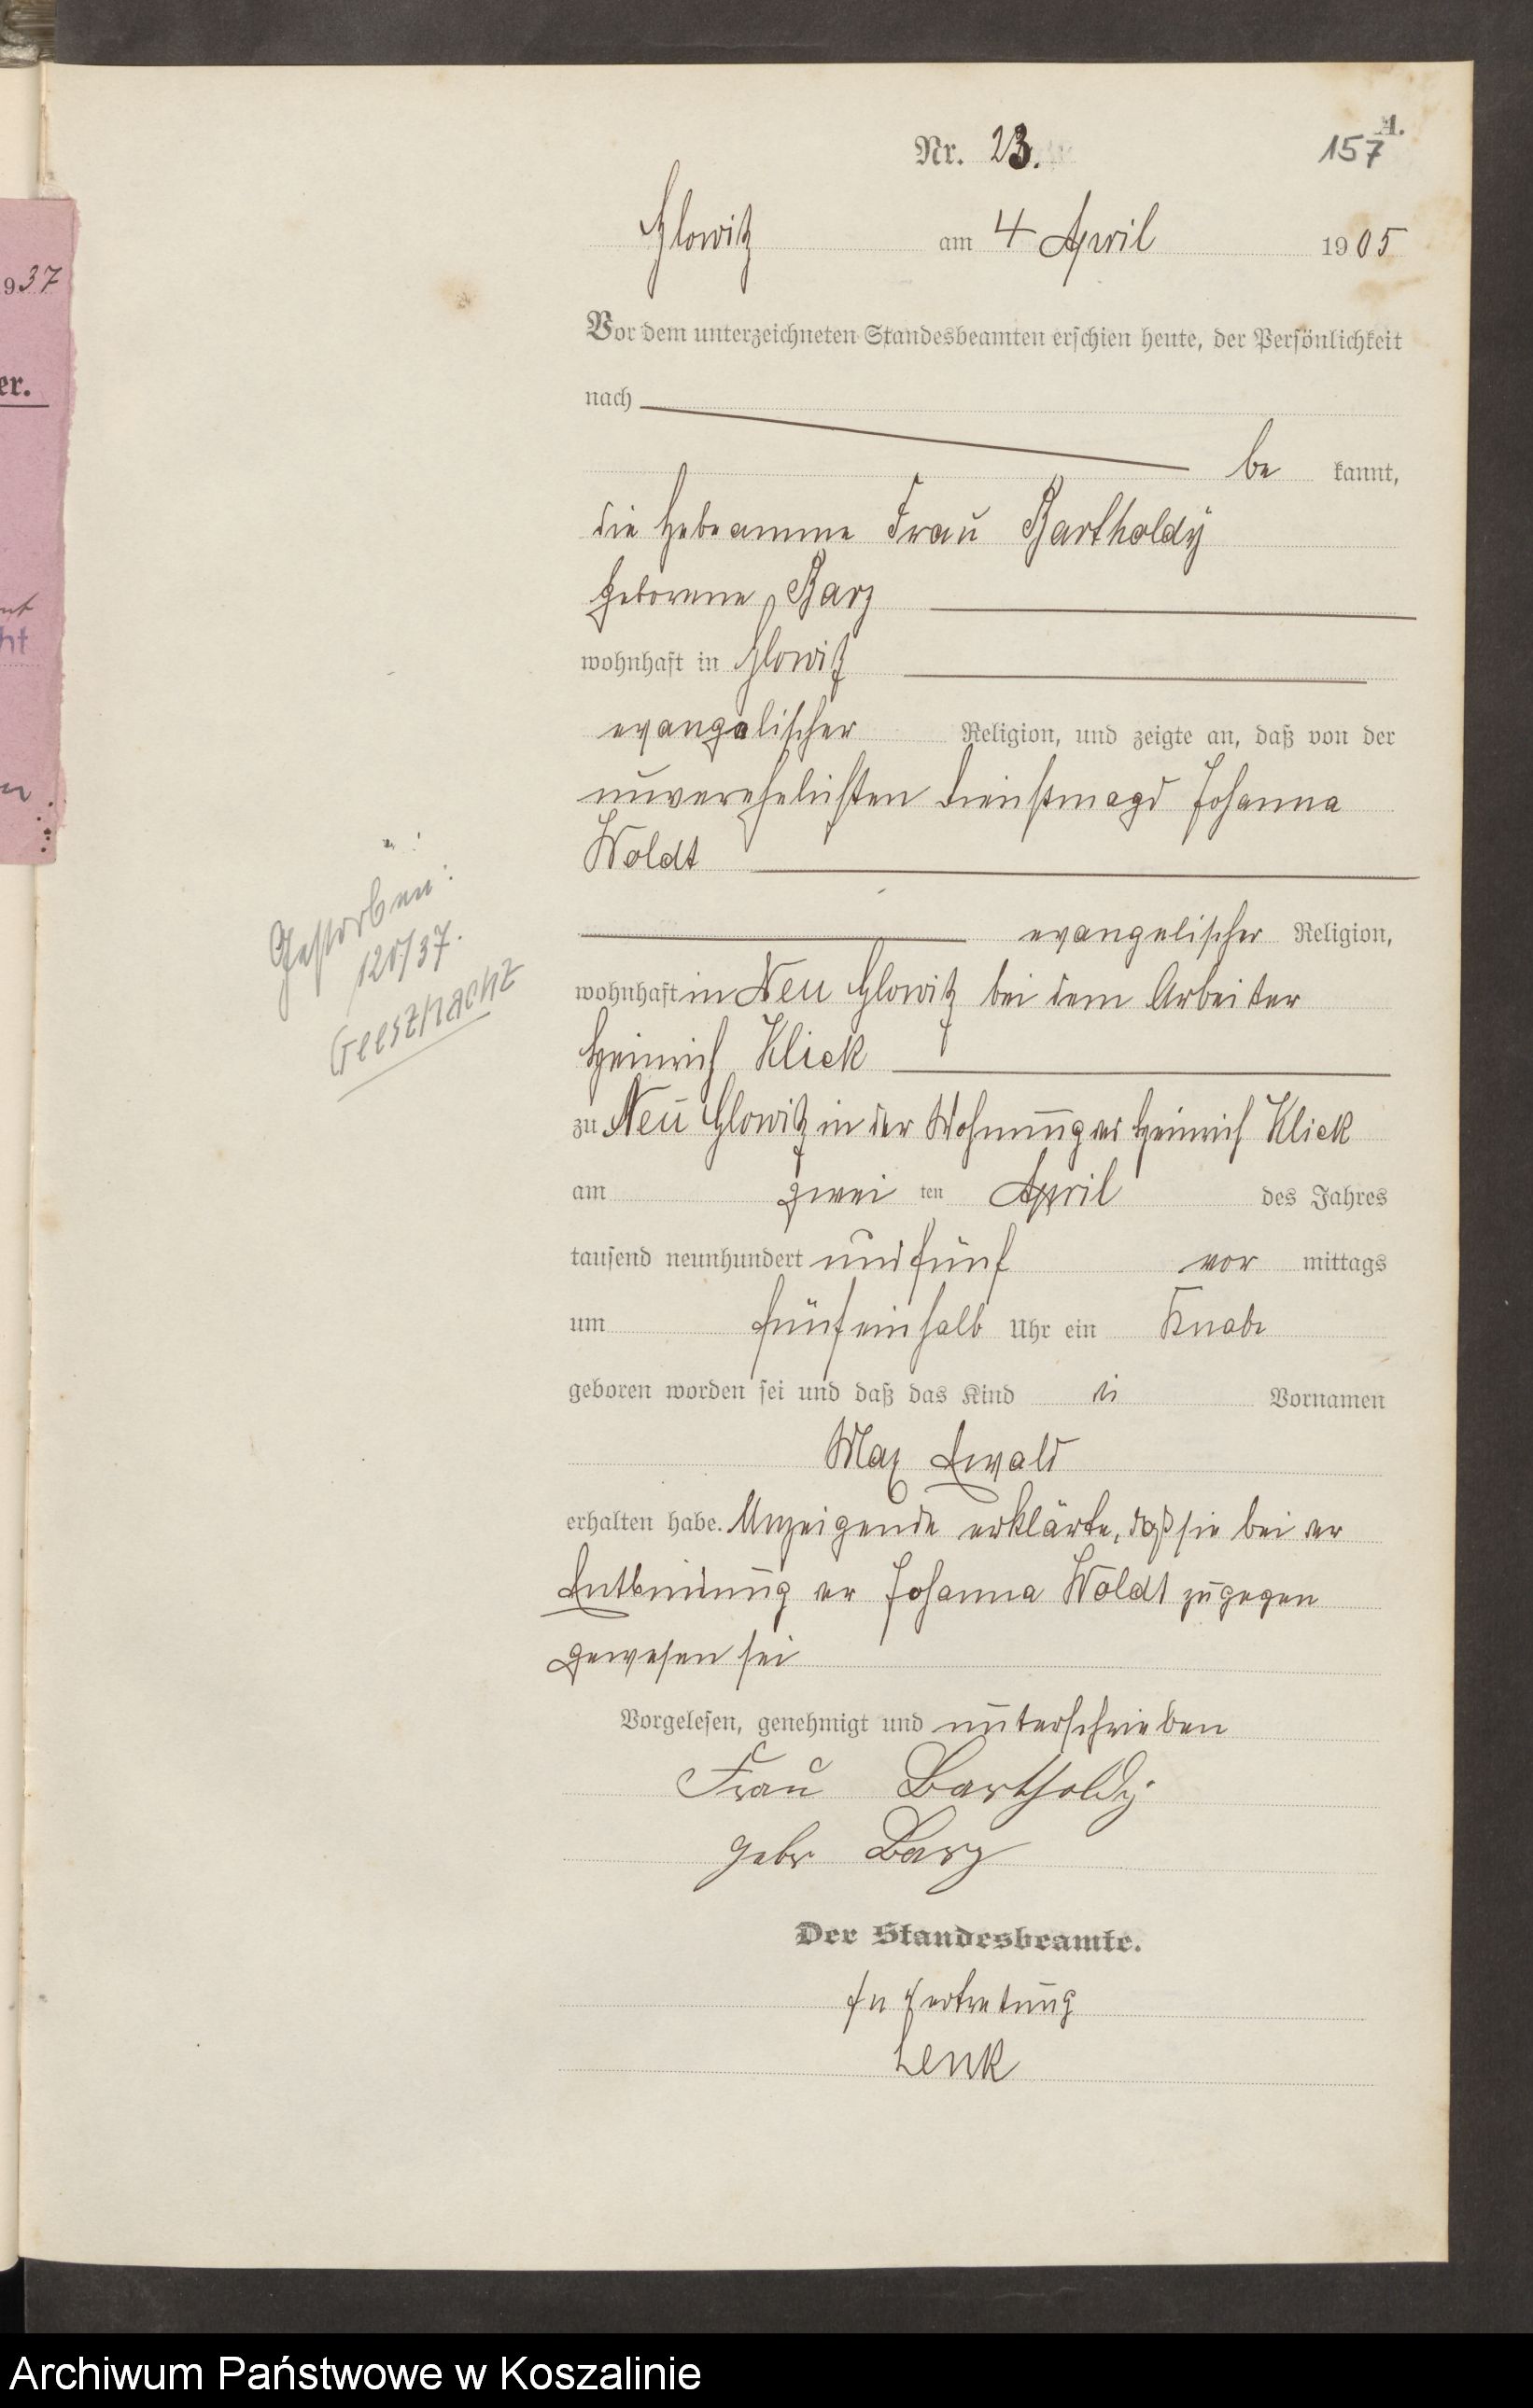 A.
Nr. 23.
157
Glowitz am 4 April 1905
Vor dem unterzeichneten Standesbeamten erschien heute, der Persönlichkeit
nach
be kannt,
die Hebeamme Frau Bartholdy
geborene Barz
wohnhaft in Glowitz
evangelischer Religion, und zeigte an, daß von der
unverehelichten Dienstmagd Johanna
Woldt
evangelischer Religion,
wohnhaft in Neu Glowitz bei dem Arbeiter
Heinrich Klick
zu Neu Glowitz in der Wohnung des Heinrich Klick
am zwei ten April des Jahres
tausend neunhundert und fünf vor mittags
um fünf einhalb Uhr ein Knabe
geboren worden sei und daß das Kind die Vornamen
Max Ewald
erhalten habe. Anzeigende erklärte, daß sie bei der
Entbindung der Johanna Woldt zugegen
gewesen sei
Vorgelesen, genehmigt und unterschrieben
Frau Bartholdy
gebr Barz
Der Standesbeamte.
In Vertretung
Lenk
Gestorben:
/37.
Geesthacht
937
er.
ht
Archiwum Państwowe w Koszalinie